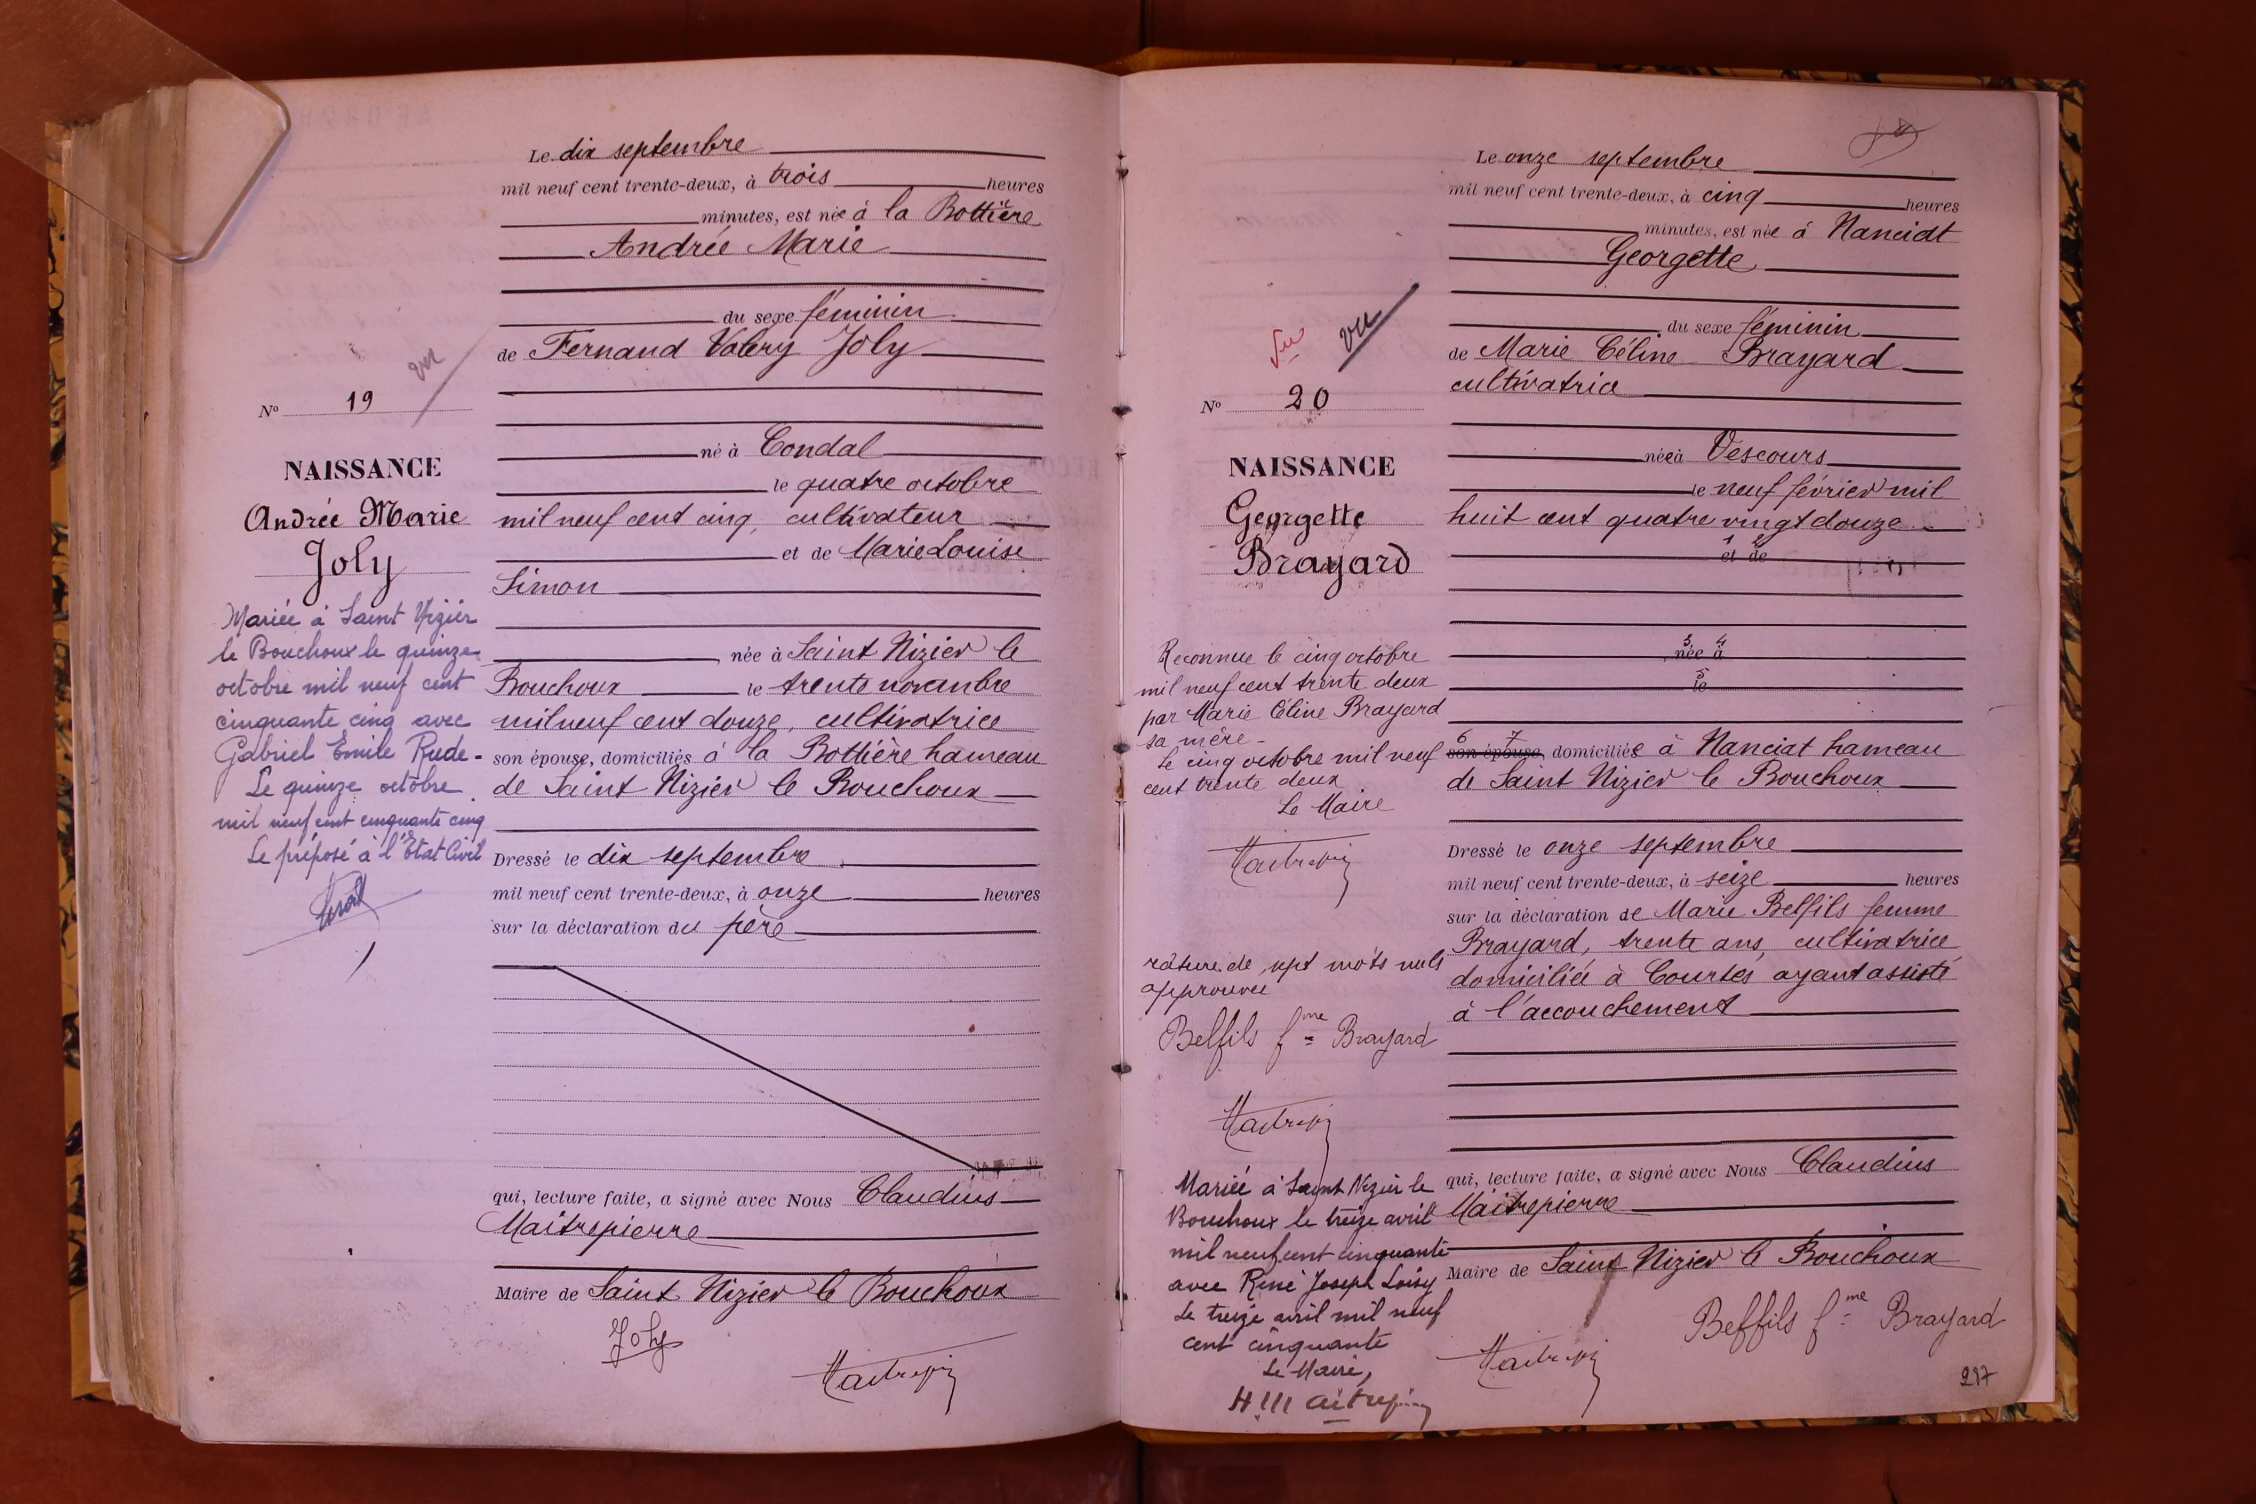 Le dix septembre
mil neuf cent trente-deux, à trois heures
minutes, est née à la Bottière
Andrée Marie
du sexe féminin
de Fernand Valery Joly
né à Condal
le quatre octobre
mil neuf cent cinq, cultivateur
et de Marie Louise
Simon
née à Saint Nizier le
Bouchoux le trente novembre
mil neuf cent douze, cultivatrice
son épouse, domiciliés à la Bottière hameau
de Saint Nizier le Bouchoux
Dressé le dix septembre
mil neuf cent trente-deux, à onze heures
sur la déclaration du père
qui, lecture faite, a signé avec Nous Claudius
Maitrepierre
Maire de Saint Nizier le Bouchoux
Joly
vu
No 19
NAISSANCE
Andrée Marie
Joly
Mariée à Saint Nizier
le Bouchoux le quinze
octobre mil neuf cent
cinquante cinq avec
Gabriel Emile Rude-
Le quinze octobre
mil neuf cent cinquante cinq
Le préposé à l'Etat Civil
Le onze septembre
mil neuf cent trente-deux, à cinq heures
minutes, est née à Nanciat
Georgette
du sexe féminin
de Marie Céline Brayard
cultivatrice
née à Vescours
le neuf février mil
huit cent quatre vingt douze
1 2
et de
3 4
née à
5
le
6 7
son épouse, domiciliée à Nanciat hameau
de Saint Nizier le Bouchoux
Dressé le onze septembre
mil neuf cent trente-deux, à seize heures
sur la déclaration de Marie Belfils femme
Brayard, trente ans, cultivatrice
domiciliée à Courtes ayant assisté
à l'accouchement
qui, lecture faite, a signé avec Nous Claudius
Maitrepierre
Maire de Saint Nizier le Bouchoux
Belfils fme Brayard
217
Vu vu
No 20
NAISSANCE
Georgette
Brayard
Reconnue le cinq octobre
mil neuf cent trente deux
par Marie Céline Brayard
sa mère-
Le cinq octobre mil neuf
cent trente deux
Le Maire
râture de sept mots nuls
approuvée
Belfils fme Brayard
Mariée à Saint Nizier le
Bouchoux le treize avril
mil neuf cent cinquante
avec René Joseph Loisy
Le treize avril mil neuf
cent cinquante
Le Maire,